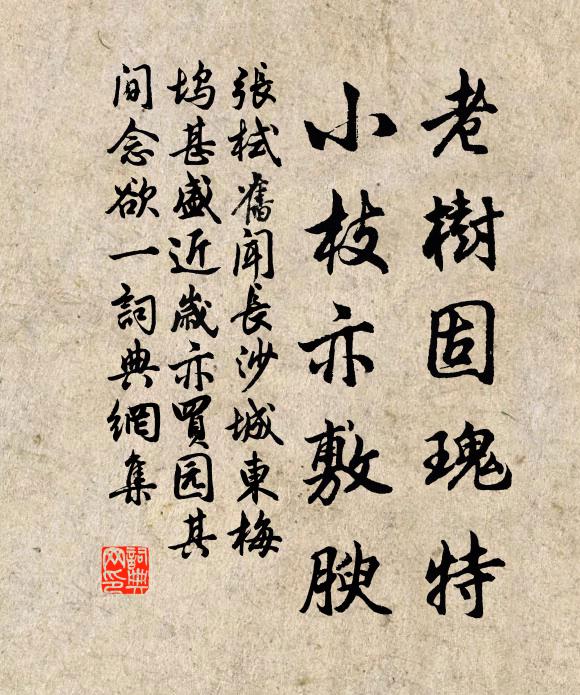 老樹固瑰特
小枝亦敷腴
張栻舊聞長沙城東梅
塢甚盛近歲亦買园其
间念欲一詞典網集
詞典网印